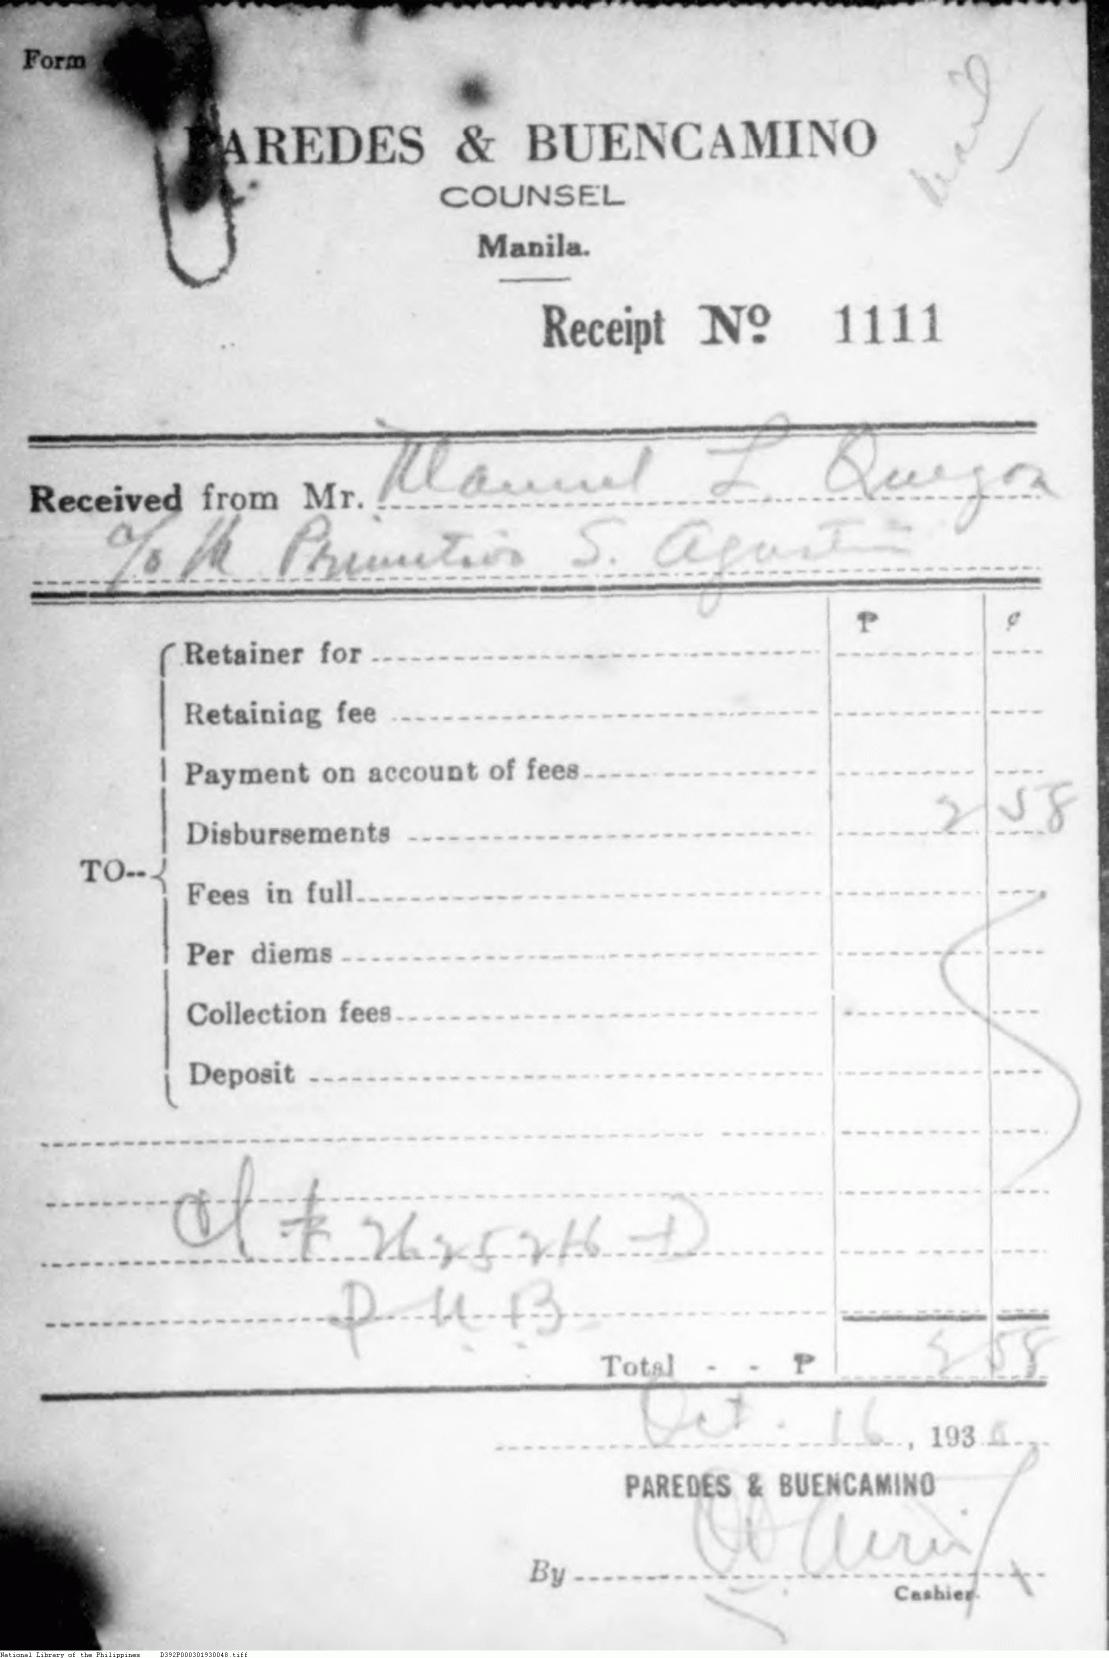 Form
mail
PAREDES & BUENCAMINO
COUNSEL
Manila.
Receipt Nº 1111
Received from Mr. Manuel L. Quezon
c/o Mr Primitivo S. Agustin
₱ ¢
Retainer for
Retaining fee
Payment on account of fees
Disbursements 2 58
TO--
Fees in full
Per diems
Collection fees
Deposit
# 262526-D
P.N.B.
Total - - ₱ 2 58
Oct. 16, 193
PAREDES & BUENCAMINO
By
Cashier
National Library of the Philippines D392P000301930048.tiff